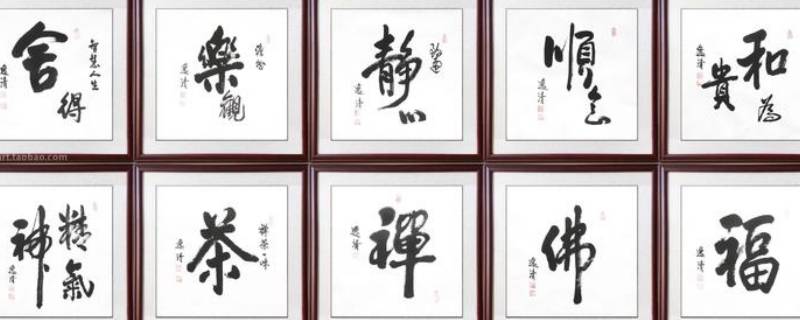 舍得
智慧人生
樂觀
逸清
靜心
逸清
順意
逸清
和為貴
逸清
art.taobao.com
精氣神
逸清
茶
禪茶一味
逸清
禪
逸清
佛
逸清
福
逸清